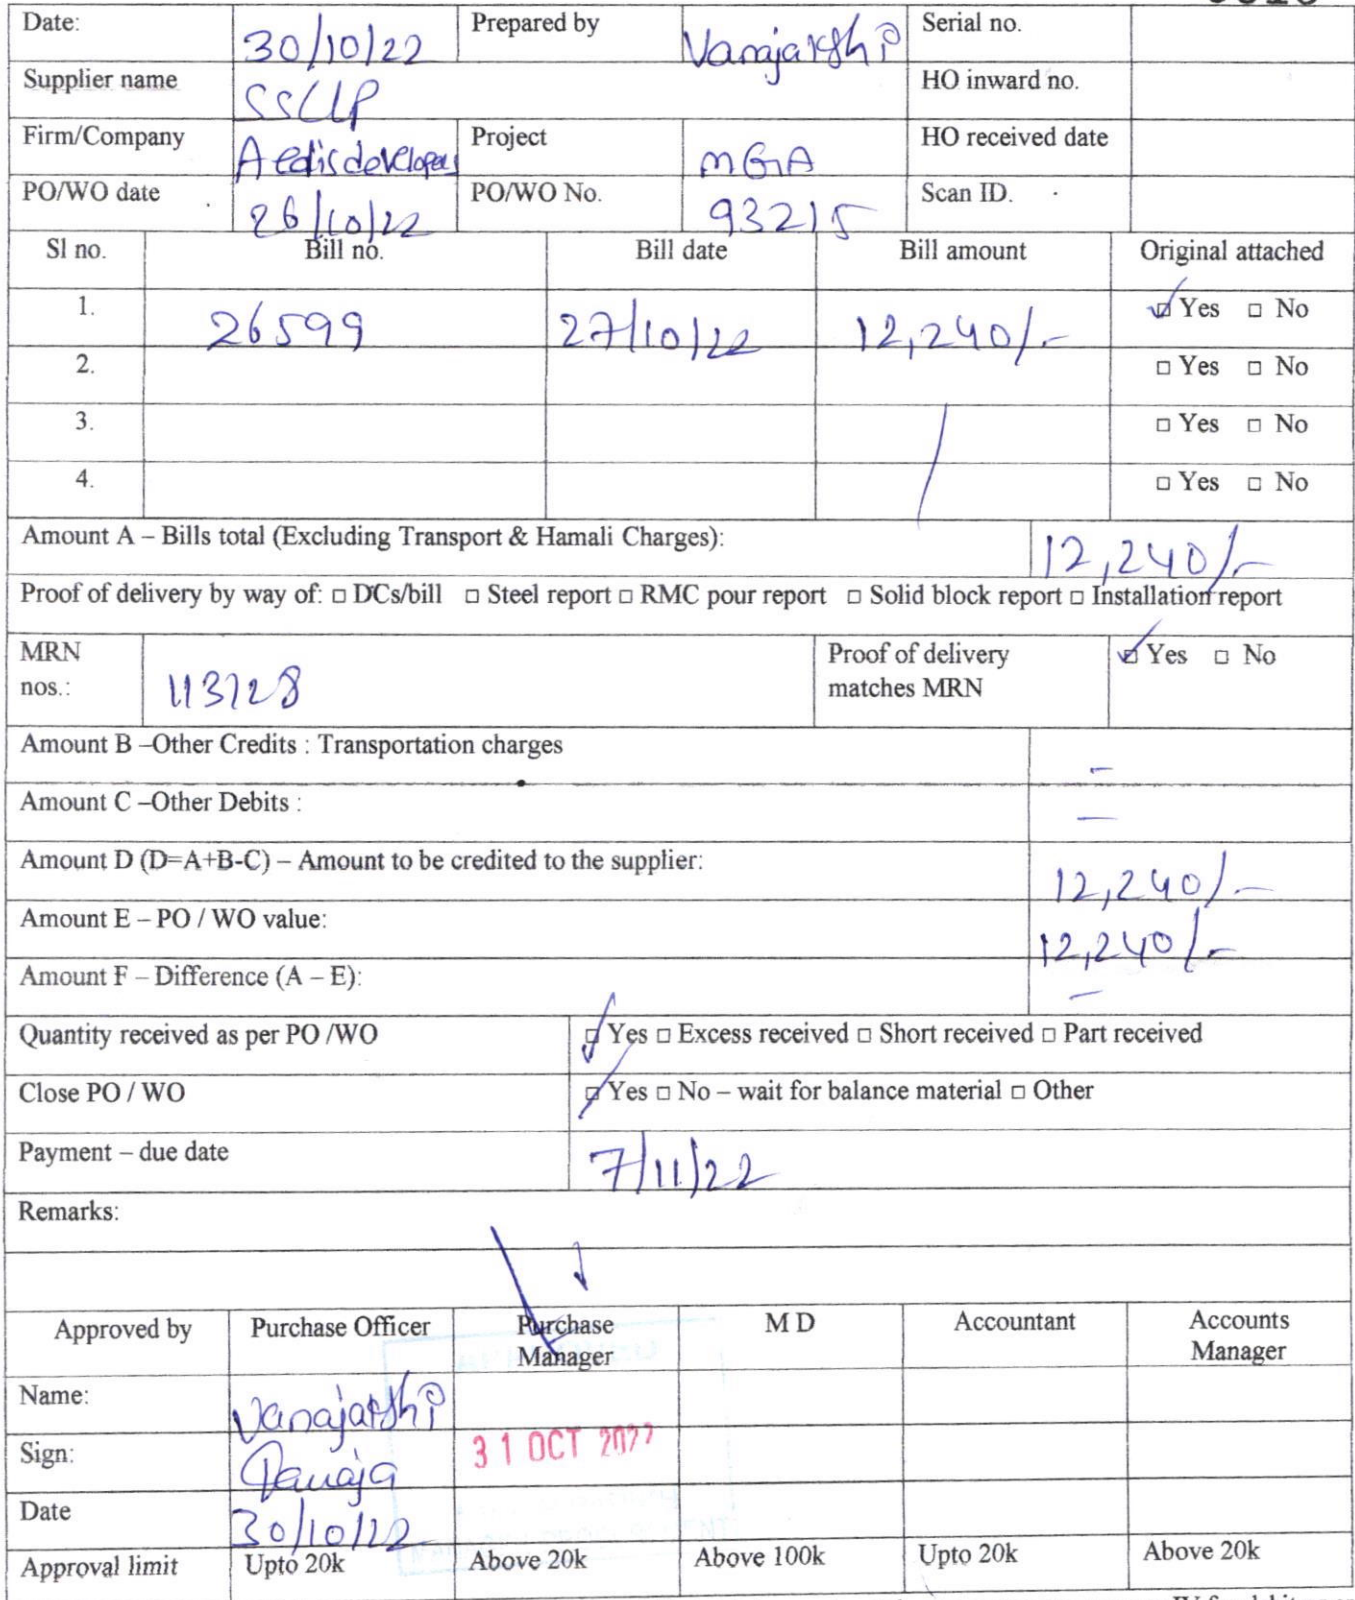 Date: 30/10/22 Prepared by Vanajakshi Serial no.
Supplier name SSLLP HO inward no.
Firm/Company Aedis developers Project MGA HO received date
PO/WO date 26/10/22 PO/WO No. 93215 Scan ID.
Sl no. Bill no. Bill date Bill amount Original attached
1. 26599 27/10/22 12,240/- ☑ Yes □ No
2. □ Yes □ No
3. □ Yes □ No
4. □ Yes □ No
Amount A – Bills total (Excluding Transport & Hamali Charges): 12,240/-
Proof of delivery by way of: □ DCs/bill □ Steel report □ RMC pour report □ Solid block report □ Installation report
MRN nos.: 113728 Proof of delivery matches MRN ☑ Yes □ No
Amount B –Other Credits : Transportation charges –
Amount C –Other Debits : –
Amount D (D=A+B-C) – Amount to be credited to the supplier: 12,240/-
Amount E – PO / WO value: 12,240/-
Amount F – Difference (A – E): –
Quantity received as per PO /WO ☑ Yes □ Excess received □ Short received □ Part received
Close PO / WO ☑ Yes □ No – wait for balance material □ Other
Payment – due date 7/11/22
Remarks:
Approved by Purchase Officer Purchase Manager M D Accountant Accounts Manager
Name: Vanajakshi
Sign: Vanaja 31 OCT 2022
Date 30/10/22
Approval limit Upto 20k Above 20k Above 100k Upto 20k Above 20k